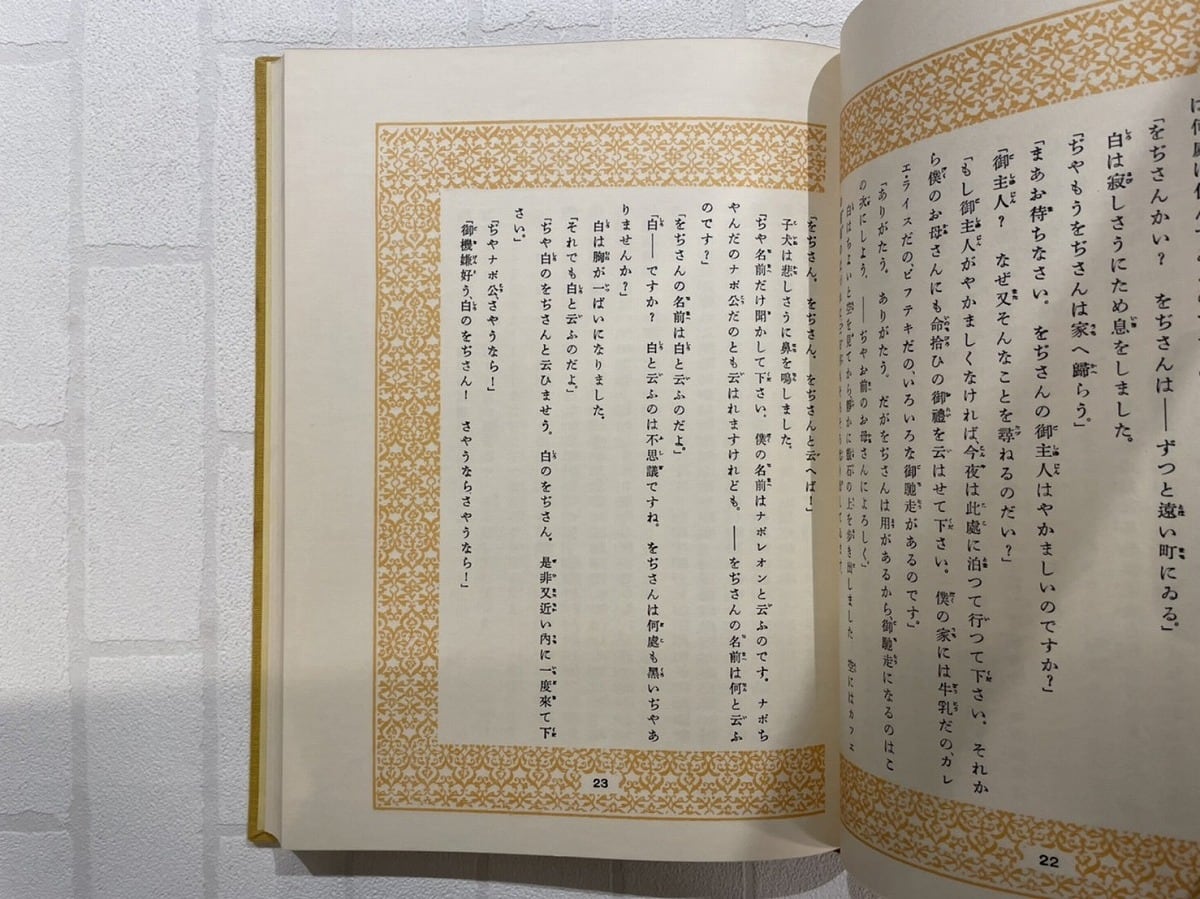 「をぢさんかい？　をぢさんは――ずつと遠い町にゐる。」
白は寂しさうにため息をしました。
「ぢやもうをぢさんは家へ歸らう。」
「まあお待ちなさい。　をぢさんの御主人はやかましいのですか？」
「御主人？　なぜ又そんなことを尋ねるのだい？」
「もし御主人がやかましくなければ、今夜は此處に泊つて行つて下さい。　それか
ら僕のお母さんにも命拾ひの御禮を云はせて下さい。　僕の家には牛乳だの、カレ
エ・ライスだの、ビフテキだの、いろいろな御馳走があるのです。」
「ありがたう。　ありがたう。　だがをぢさんは用があるから、御馳走になるのはこ
の次にしよう。――ぢやお前のお母さんによろしく。」
白はちよいと空を見てから、靜かに敷石の上を歩き出しました　空にはカフェ
22
「をぢさん。　をぢさん。　をぢさんと云へば！」
子犬は悲しさうに鼻を鳴しました。
「ぢや名前だけ聞かして下さい。　僕の名前はナポレオンと云ふのです。　ナポち
やんだのナポ公だのとも云はれますけれども。――をぢさんの名前は何と云ふ
のです？」
「をぢさんの名前は白と云ふのだよ。」
「白――ですか？　白と云ふのは不思議ですね。　をぢさんは何處も黑いぢやあ
りませんか？」
白は胸が一ぱいになりました。
「それでも白と云ふのだよ。」
「ぢや白のをぢさんと云ひませう。　白のをぢさん。　是非又近い內に一度來て下
さい。」
「ぢやナポ公、さやうなら！」
「御機嫌好う、白のをぢさん！　さやうならさやうなら！」
23